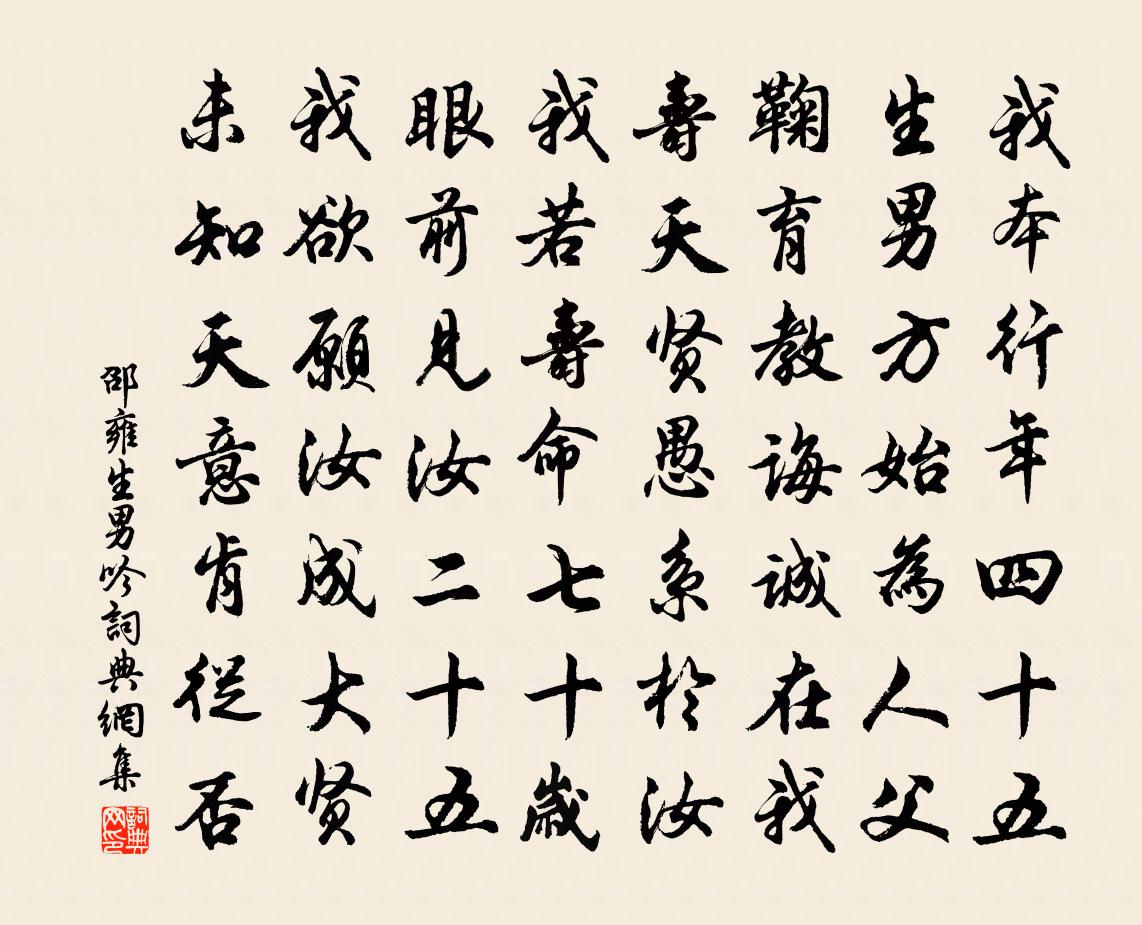 我本行年四十五
生男方始為人父
鞠育教誨誠在我
壽天贤愚系於汝
我若壽命七十歲
眼前見汝二十五
我欲願汝成大贤
未知天意肯從否
邵雍生男吟詞典網集
詞典网印